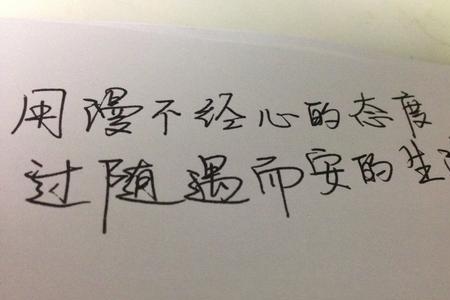 用漫不经心的态度
过随遇而安的生